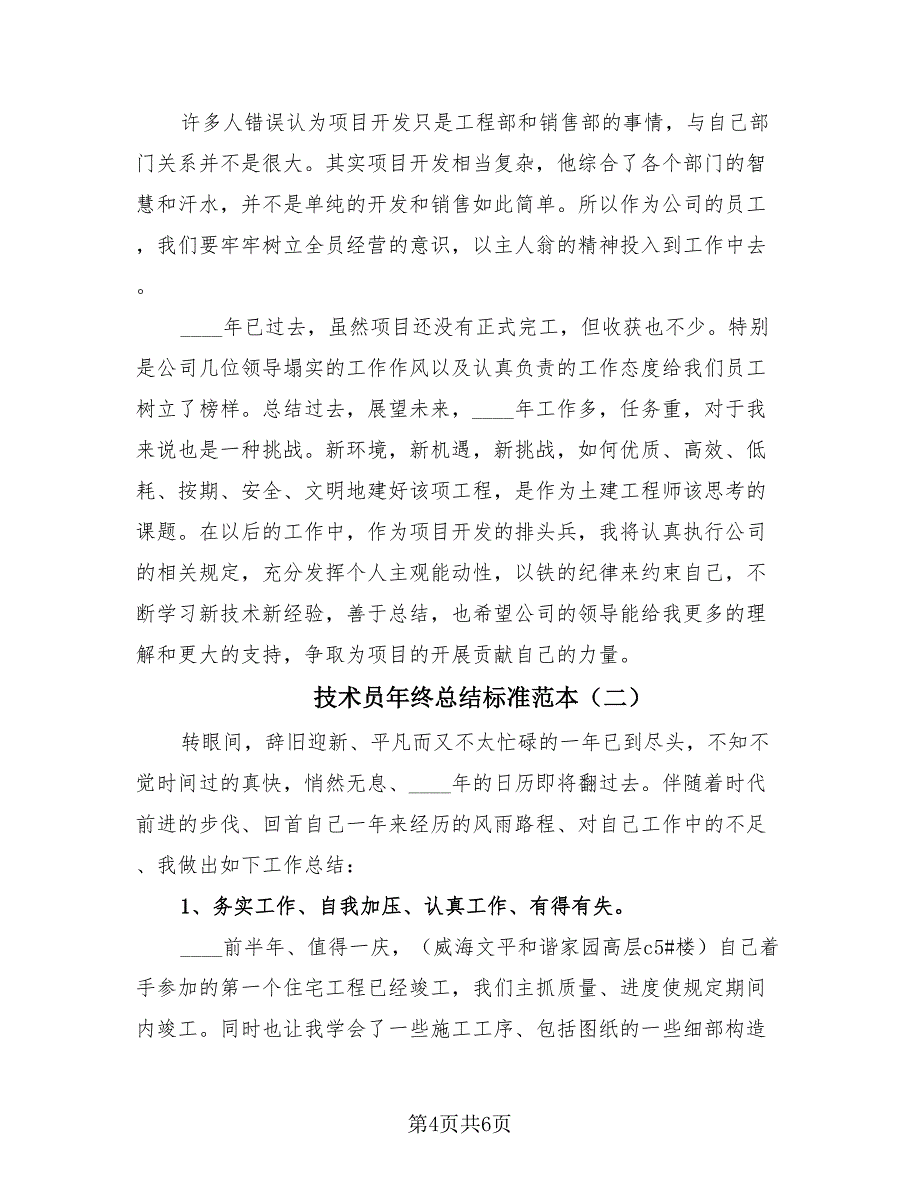 许多人错误认为项目开发只是工程部和销售部的事情，与自己部
门关系并不是很大。其实项目开发相当复杂，他综合了各个部门的智
慧和汗水，并不是单纯的开发和销售如此简单。所以作为公司的员工
，我们要牢牢树立全员经营的意识，以主人翁的精神投入到工作中去
。
____年已过去，虽然项目还没有正式完工，但收获也不少。特别
是公司几位领导塌实的工作作风以及认真负责的工作态度给我们员工
树立了榜样。总结过去，展望未来，____年工作多，任务重，对于我
来说也是一种挑战。新环境，新机遇，新挑战，如何优质、高效、低
耗、按期、安全、文明地建好该项工程，是作为土建工程师该思考的
课题。在以后的工作中，作为项目开发的排头兵，我将认真执行公司
的相关规定，充分发挥个人主观能动性，以铁的纪律来约束自己，不
断学习新技术新经验，善于总结，也希望公司的领导能给我更多的理
解和更大的支持，争取为项目的开展贡献自己的力量。
技术员年终总结标准范本（二）
转眼间，辞旧迎新、平凡而又不太忙碌的一年已到尽头，不知不
觉时间过的真快，悄然无息、____年的日历即将翻过去。伴随着时代
前进的步伐、回首自己一年来经历的风雨路程、对自己工作中的不足
、我做出如下工作总结：
1、务实工作、自我加压、认真工作、有得有失。
____前半年、值得一庆，（威海文平和谐家园高层c5#楼）自己着
手参加的第一个住宅工程已经竣工，我们主抓质量、进度使规定期间
内竣工。同时也让我学会了一些施工工序、包括图纸的一些细部构造
第4页共6页